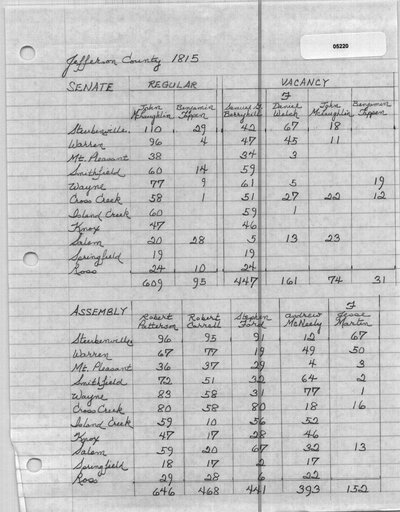 05220
Jefferson County 1815
SENATE REGULAR VACANCY
F
John McLaughlin Benjamin Tappan Samuel G. Berryhill Daniel Welch John McLaughlin Benjamin Tappan
Steubenville 110 29 42 67 18
Warren 96 4 47 45 11
Mt. Pleasant 38 34 3
Smithfield 60 14 59
Wayne 77 9 61 5 19
Cross Creek 58 1 51 27 22 12
Island Creek 60 59 1
Knox 47 46
Salem 20 28 5 13 23
Springfield 19 19
Ross 24 10 24
609 95 447 161 74 31
ASSEMBLY F
Robert Patterson Robert Carrell Stephen Ford Andrew McNeely Jesse Martin
Steubenville 96 95 91 12 67
Warren 67 77 19 49 50
Mt. Pleasant 36 37 29 4 3
Smithfield 72 51 32 64 2
Wayne 83 58 31 77 1
Cross Creek 80 58 80 18 16
Island Creek 59 10 56 52
Knox 47 17 28 46
Salem 59 20 67 32 13
Springfield 18 17 2 17
Ross 29 28 6 22
646 468 441 393 152